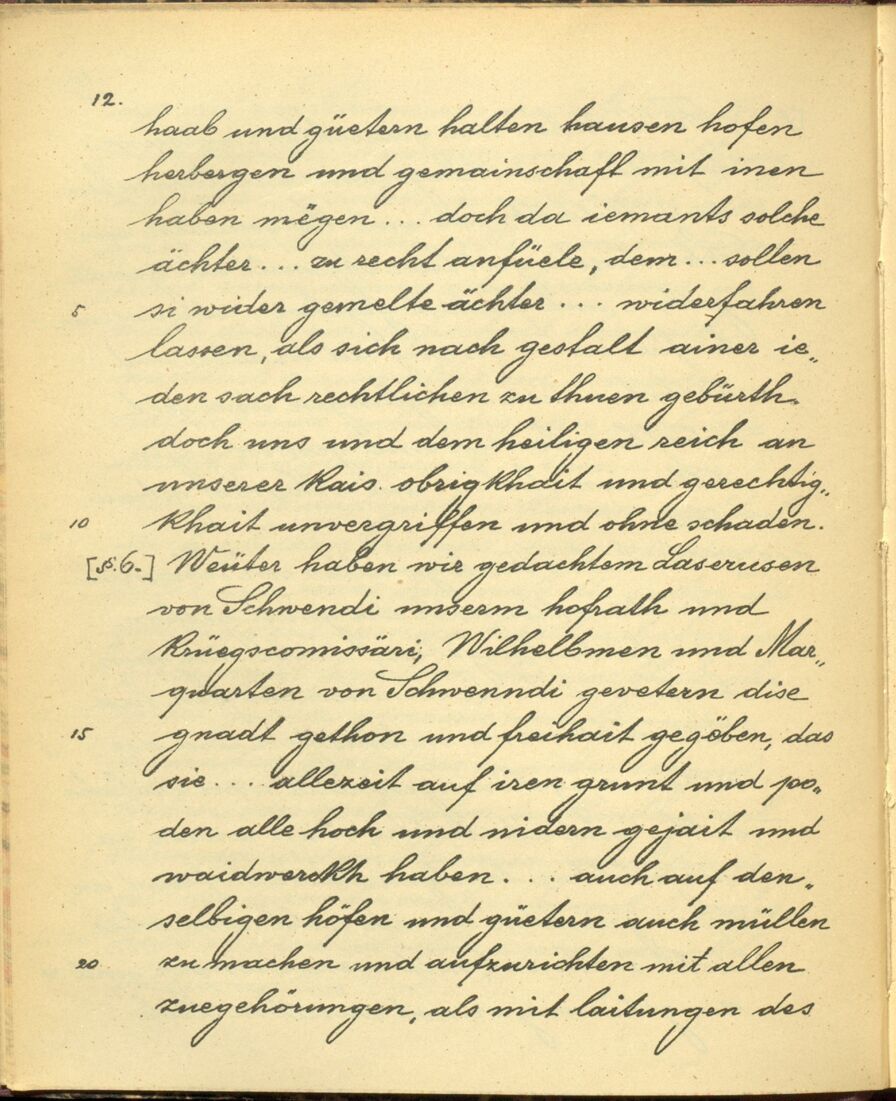 12.
haab und güetern halten hausen hofen
herbergen und gemainschaft mit inen
haben mëgen ... doch da iemants solche
ächter ... zu recht anfüele, dem ... sollen
5 si wider gemelte ächter ... widerfahren
lassen, als sich nach gestalt ainer ie„
den sach rechtlichen zu thuen gebürth.
doch uns und dem heiligen reich an
unserer kais. obrigkhait und gerechtig„
10 khait unvergriffen und ohne schaden.
[§.6.] Weüter haben wir gedachtem Laserusen
von Schwendi unserm hofrath und
krüegscomissäri, Wilhelbmen und Mar„
quarten von Schwenndi gevetern dise
15 gnadt gethon und freihait gegëben, das
sie ... allezeit auf iren grunt und po„
den alle hoch und nidern gejait und
waidwerckh haben ... auch auf den„
selbigen höfen und güetern auch müllen
20 zu machen und aufzurichten mit allen
zuegehörungen, als mit laitungen des